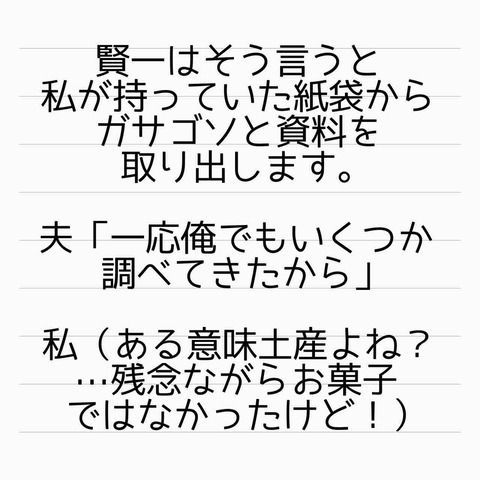 賢一はそう言うと
私が持っていた紙袋から
ガサゴソと資料を
取り出します。
夫「一応俺でもいくつか
調べてきたから」
私（ある意味土産よね？
…残念ながらお菓子
ではなかったけど！）